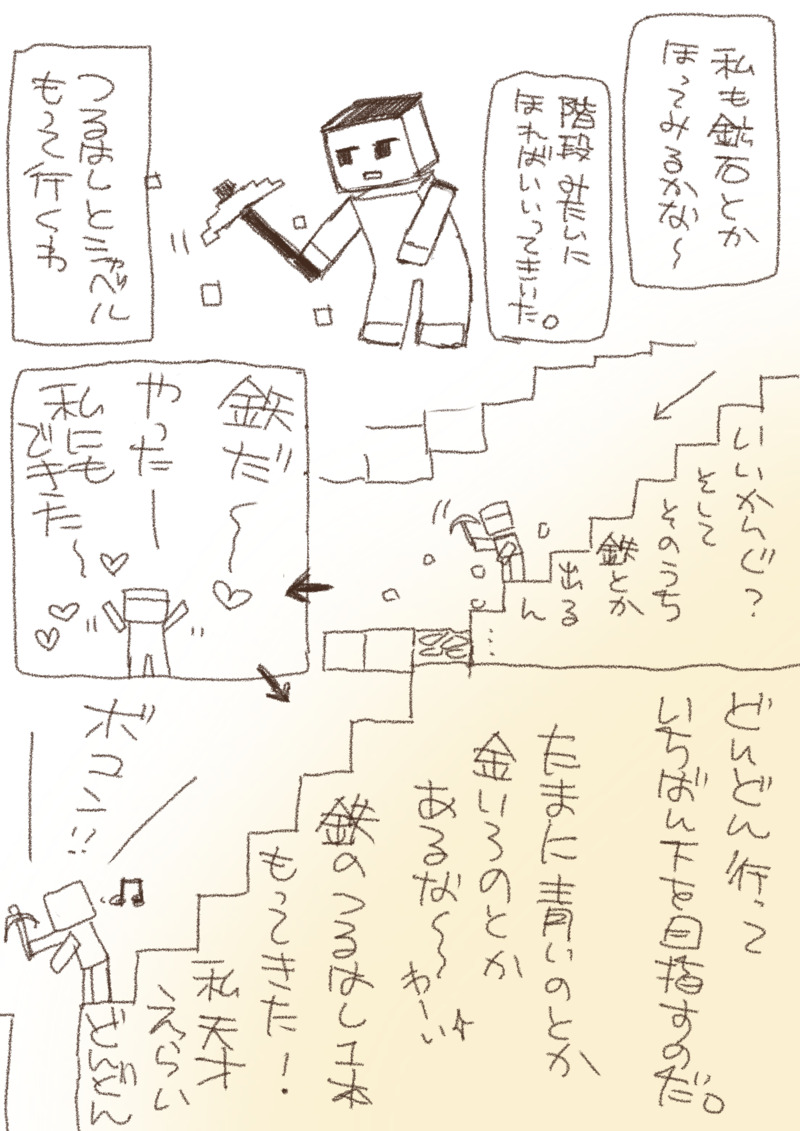 私も鉱石とか
ほってみるかな〜
階段みたいに
ほればいいってきいた。
つるはしとシャベル
もって行くわ
いいかんじ?
そして
そのうち
鉄とか
出る
ん
…
鉄だ〜♡
やったー
私にも
できた〜
どんどん行って
いちばん下を目指すのだ。
たまに青いのとか
金いろのとか
あるな〜〜
わーい☆
鉄のつるはし1本
もってきた!
私天才
えらい
どんどん
ボコン!!